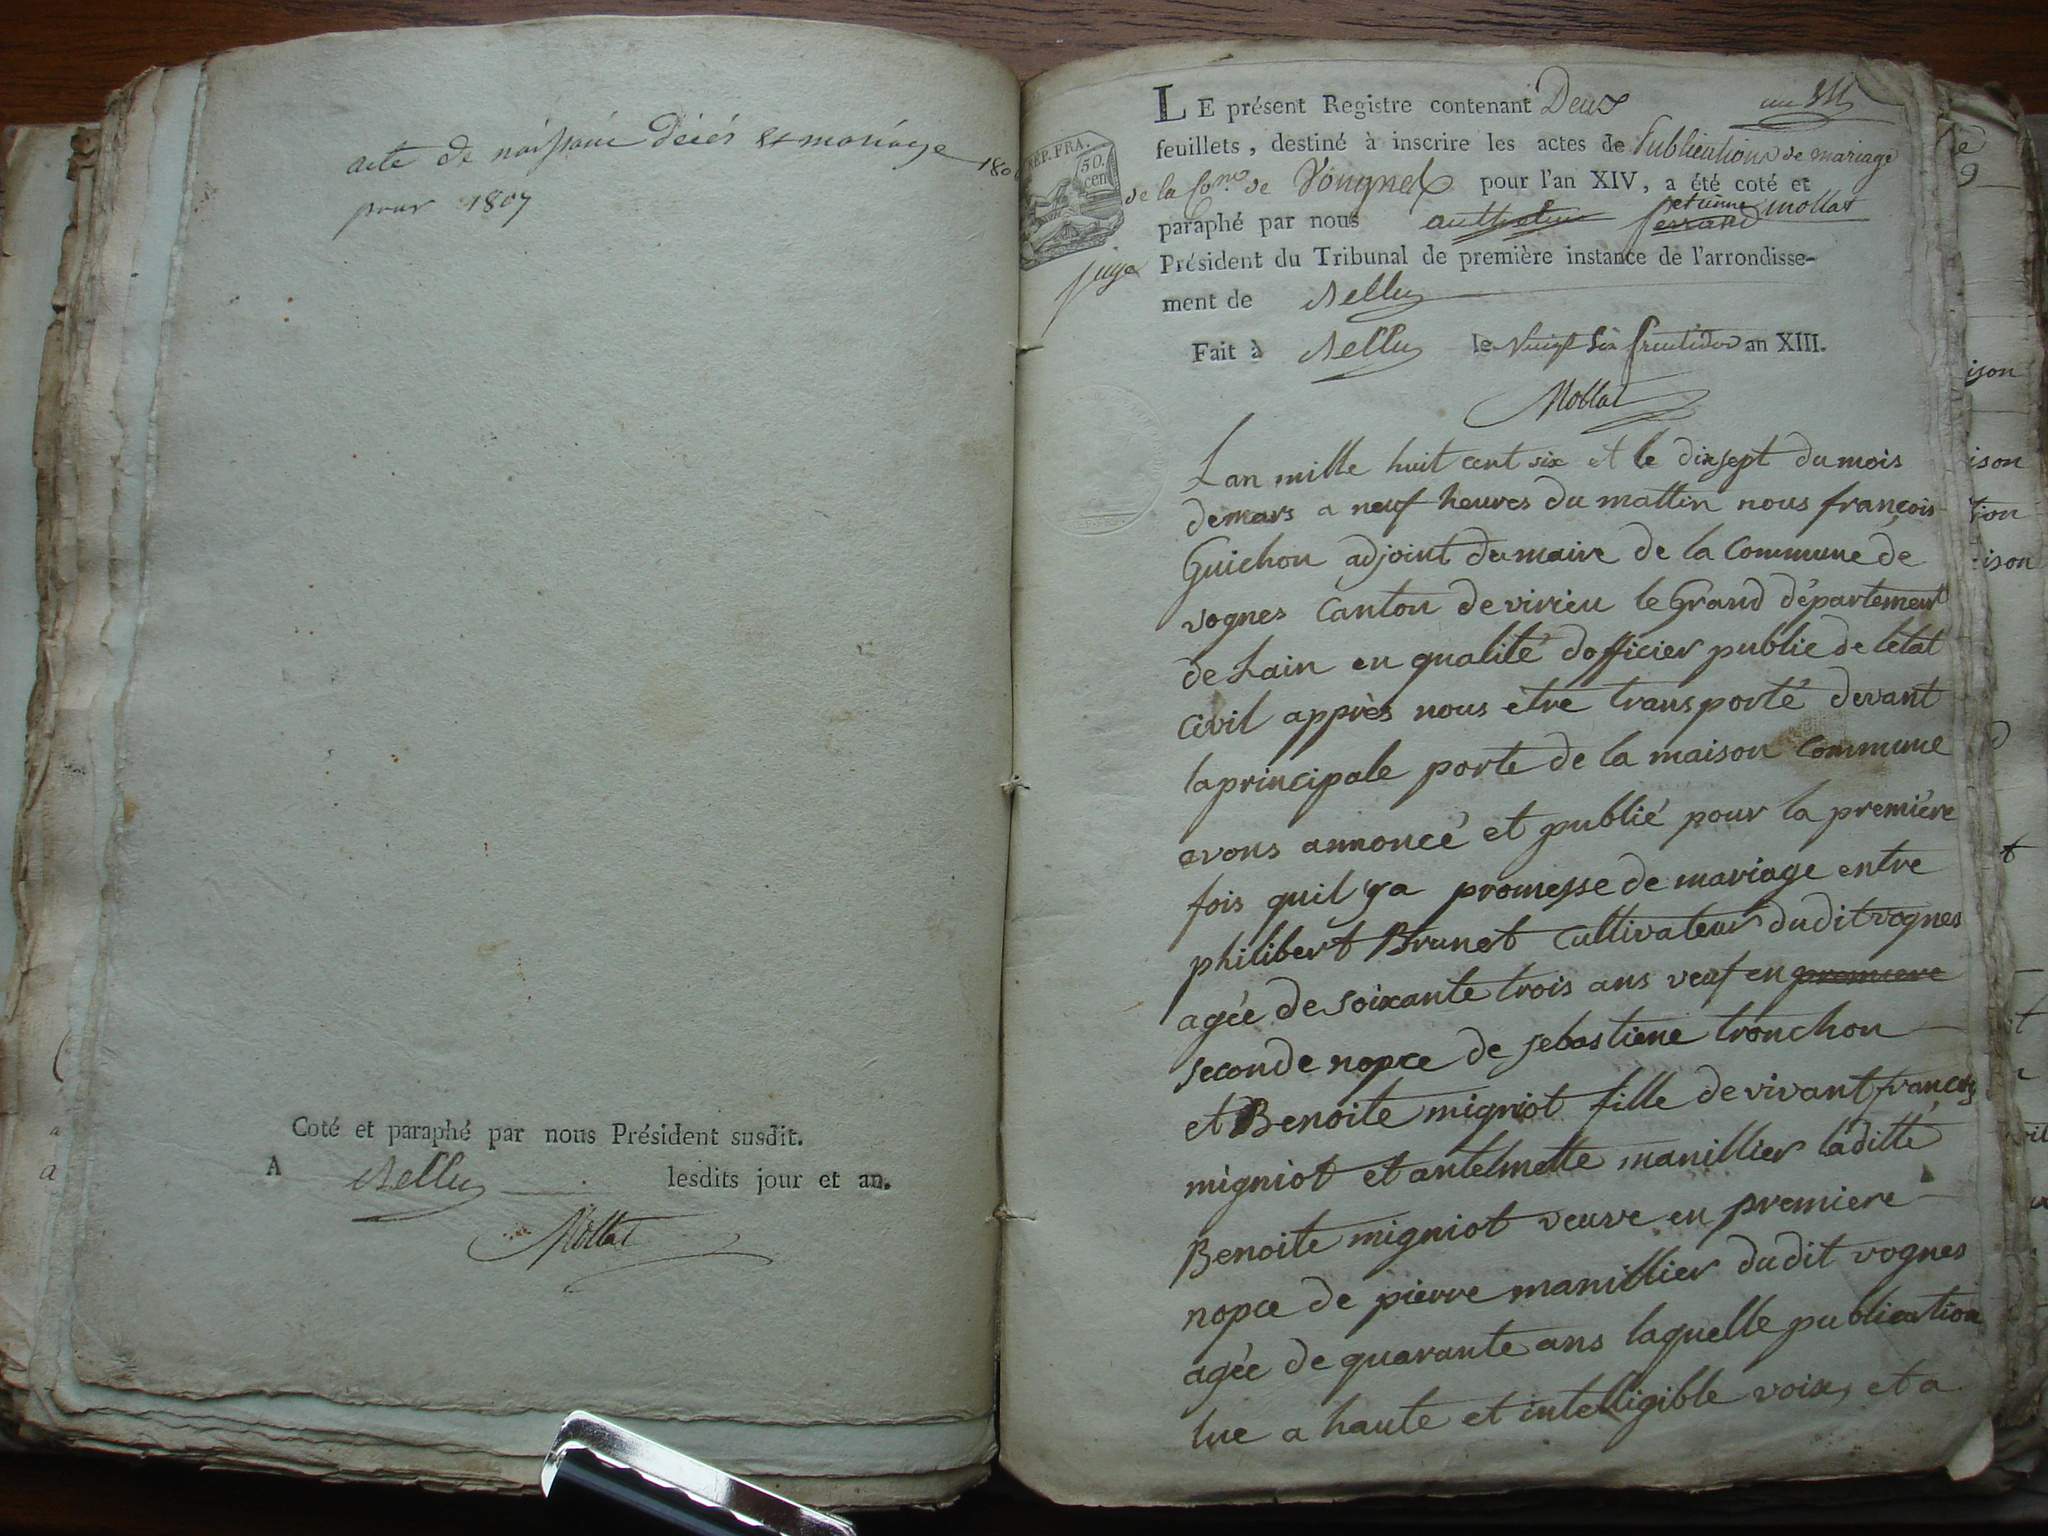 acte de naissance décés et mariage 180
pour 1807
Coté et paraphé par nous Président susdit.
A Belley lesdits jour et an.
Mollat
RÉP. FRA.
50.
cen
LE présent Registre contenant Deux
feuillets, destiné à inscrire les actes de Publications de mariage
de la Com.ne de Vougnes pour l'an XIV, a été coté et
paraphé par nous anthelme ferrand etienne mollat
juge Président du Tribunal de première instance de l'arrondisse-
ment de Belley
Fait à Belley le Vingt Six fructidor an XIII.
Mollat
Lan mille huit cent six et le dixsept du mois
demars a neuf heures du mattin nous françois
Guichon adjoint du maire de la Commune de
vognes Canton devirieu le Grand département
de Lain en qualité dofficier public de létat
Civil apprès nous etre transporté devant
laprincipale porte de la maison Commune
avons annoncé et publié pour la premiére
fois quil ya promesse de mariage entre
philibert Brunet Cultivateur dudit vognes
agée de soixante trois ans veuf en premiere
seconde nopce de sebastiene tronchon
et Benoite migniot fille devivant françois
migniot et antelmette manillier laditte
Benoite migniot veuve en premiere
nopce de pierre manillier dudit vognes
agée de quarante ans laquelle publication
lue a haute et intelligible voix, et a